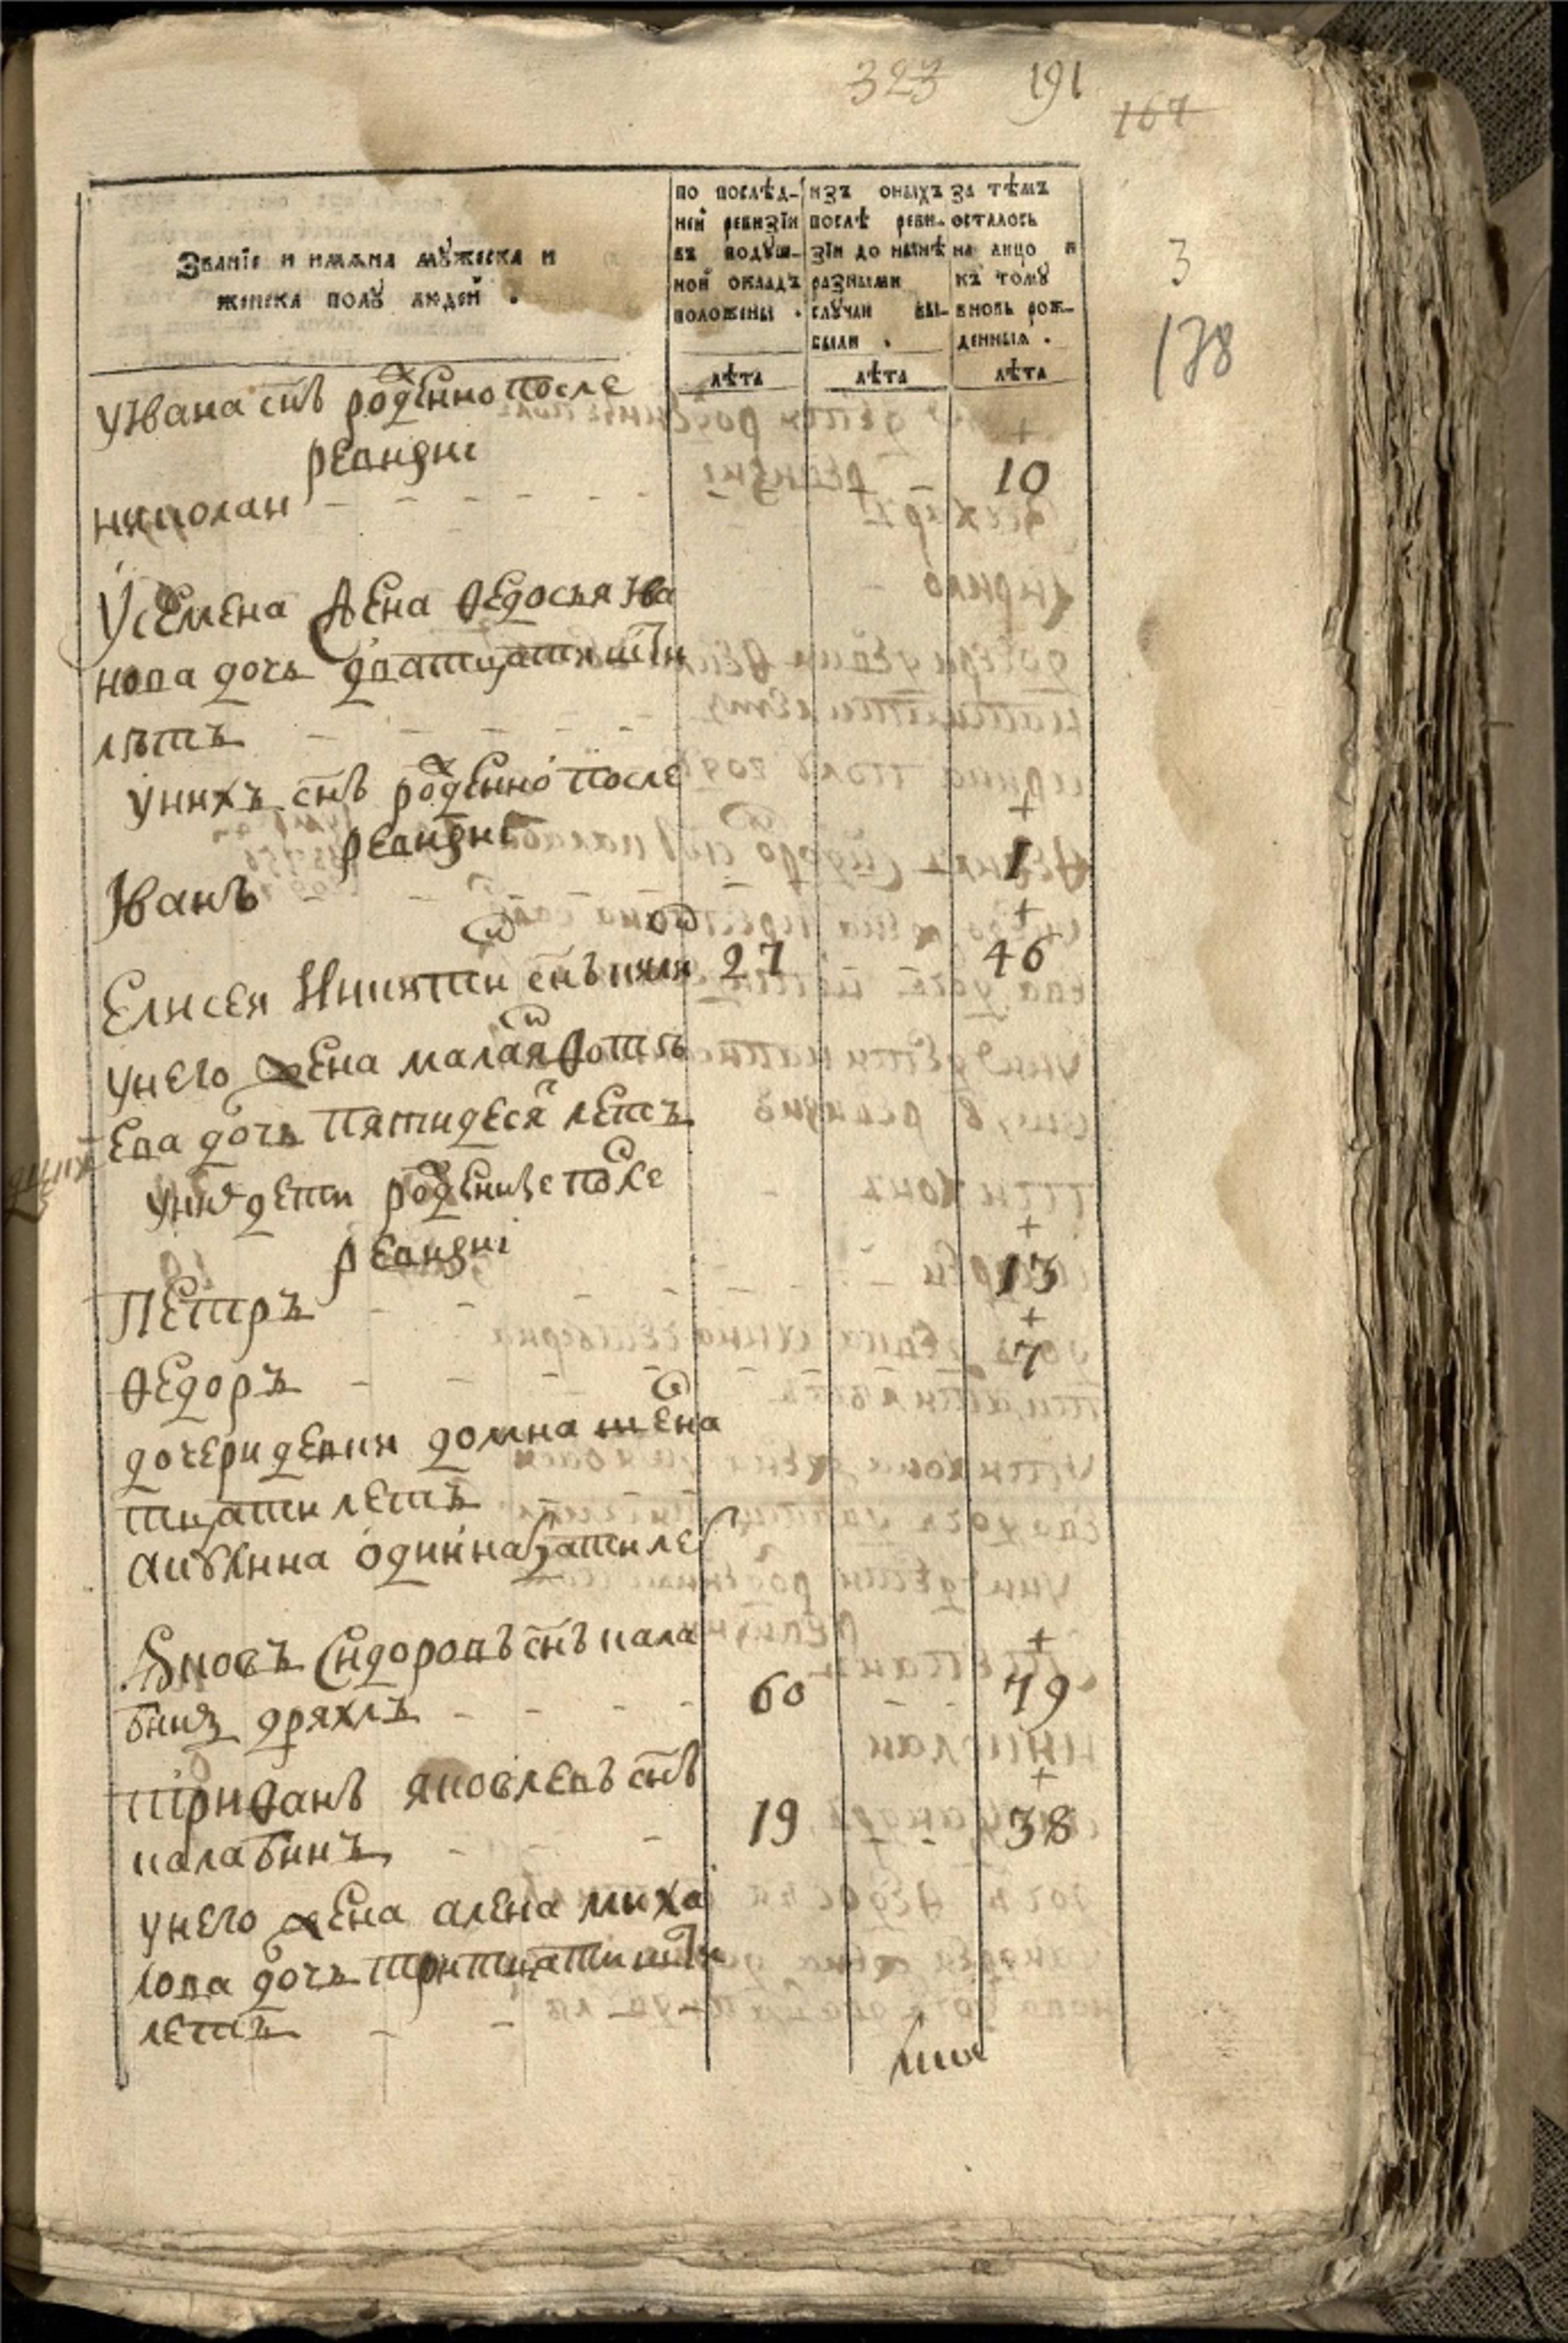 323 191
167
Званїе и имѧна мꙋжеска и
женска полꙋ людей .
по послѣд-
ней ревизїи
въ подꙋш-
ной окладъ
положены .
изъ оныхъ
послѣ реви-
зїи до нынѣ
разными
слꙋчаи вы-
были .
за тѣмъ
осталось
на лицо и
къ томꙋ
вновь рож-
денныѧ .
лѣта лѣта лѣта
3
138
у Ивана снъ рожденно после
ревизиі
николаи 10
у семена жена Ѳедосья Ива
нова дочь дватцати шти
лѣтъ
у нихъ снъ рожденно после
ревизиі
Іванъ 1
Елисея Никитин снъ 27 46
у него жена маланя Ѳоть
ева дочь пятидеся летъ
у них дети рожденные после
ревизиі
Петръ 13
Ѳедоръ 7
дочери девки домна шесна
тцати летъ
акулина одиннатцати ле
Яковъ Сидоровъ снъ кала
бин дряхлъ 60 79
триѳанъ яковлевъ снъ
калабинъ 19 38
у него жена алена миха
лова дочь тритцати шти
летъ